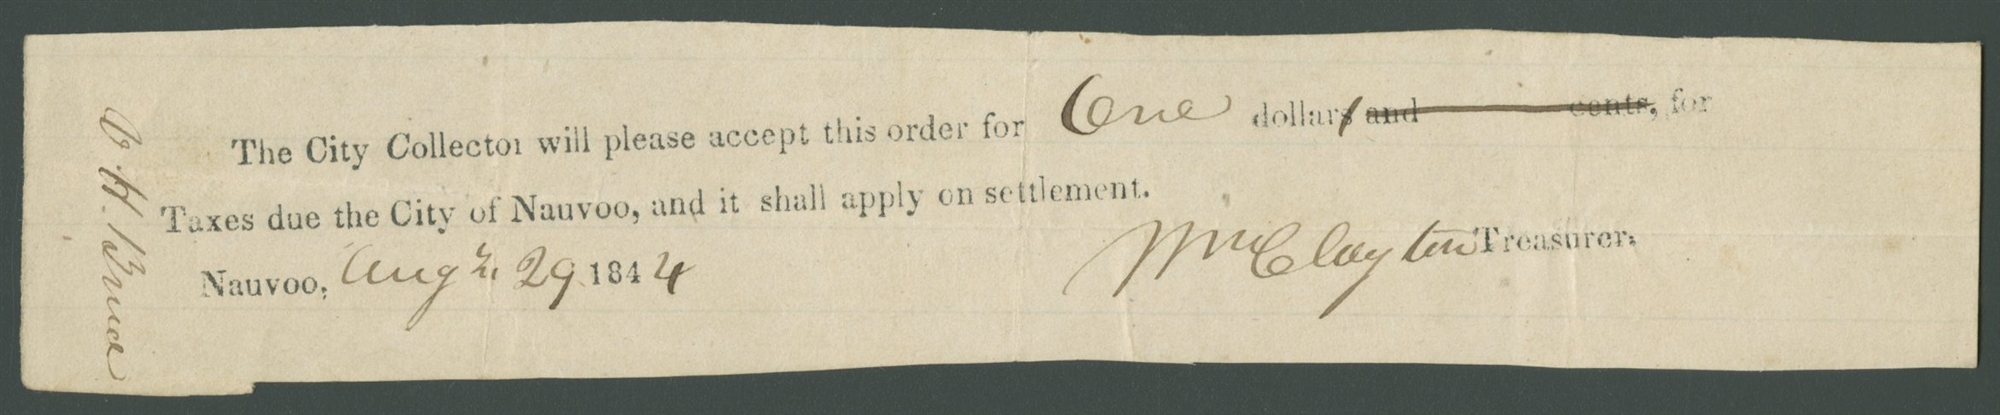 The City Collector will please accept this order for One dollars and cents, for
Taxes due the City of Nauvoo, and it shall apply on settlement.
Wm Clayton Treasurer.
Nauvoo, Augt. 29 1844
H. Bruce